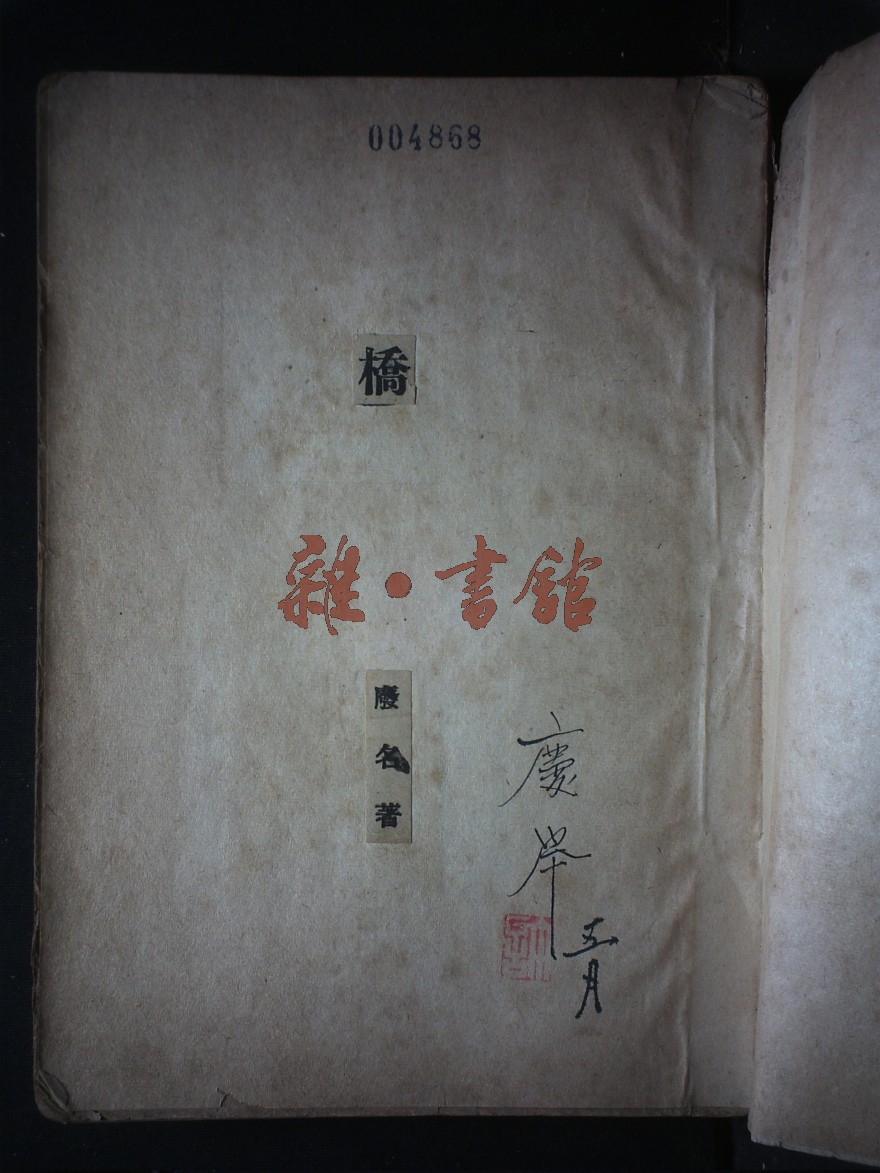 004868
橋
雜·書館
廢名著
慶举
五月